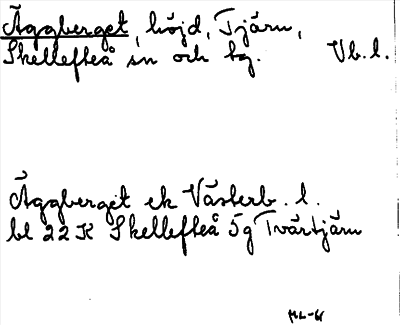 Äggberget, höjd, Tjärn,
Skellefteå sn och tg. Vb. l.
Äggberget ek Västerb. l.
bl 22 K Skellefteå 5g Tvärtjärn
ML-61